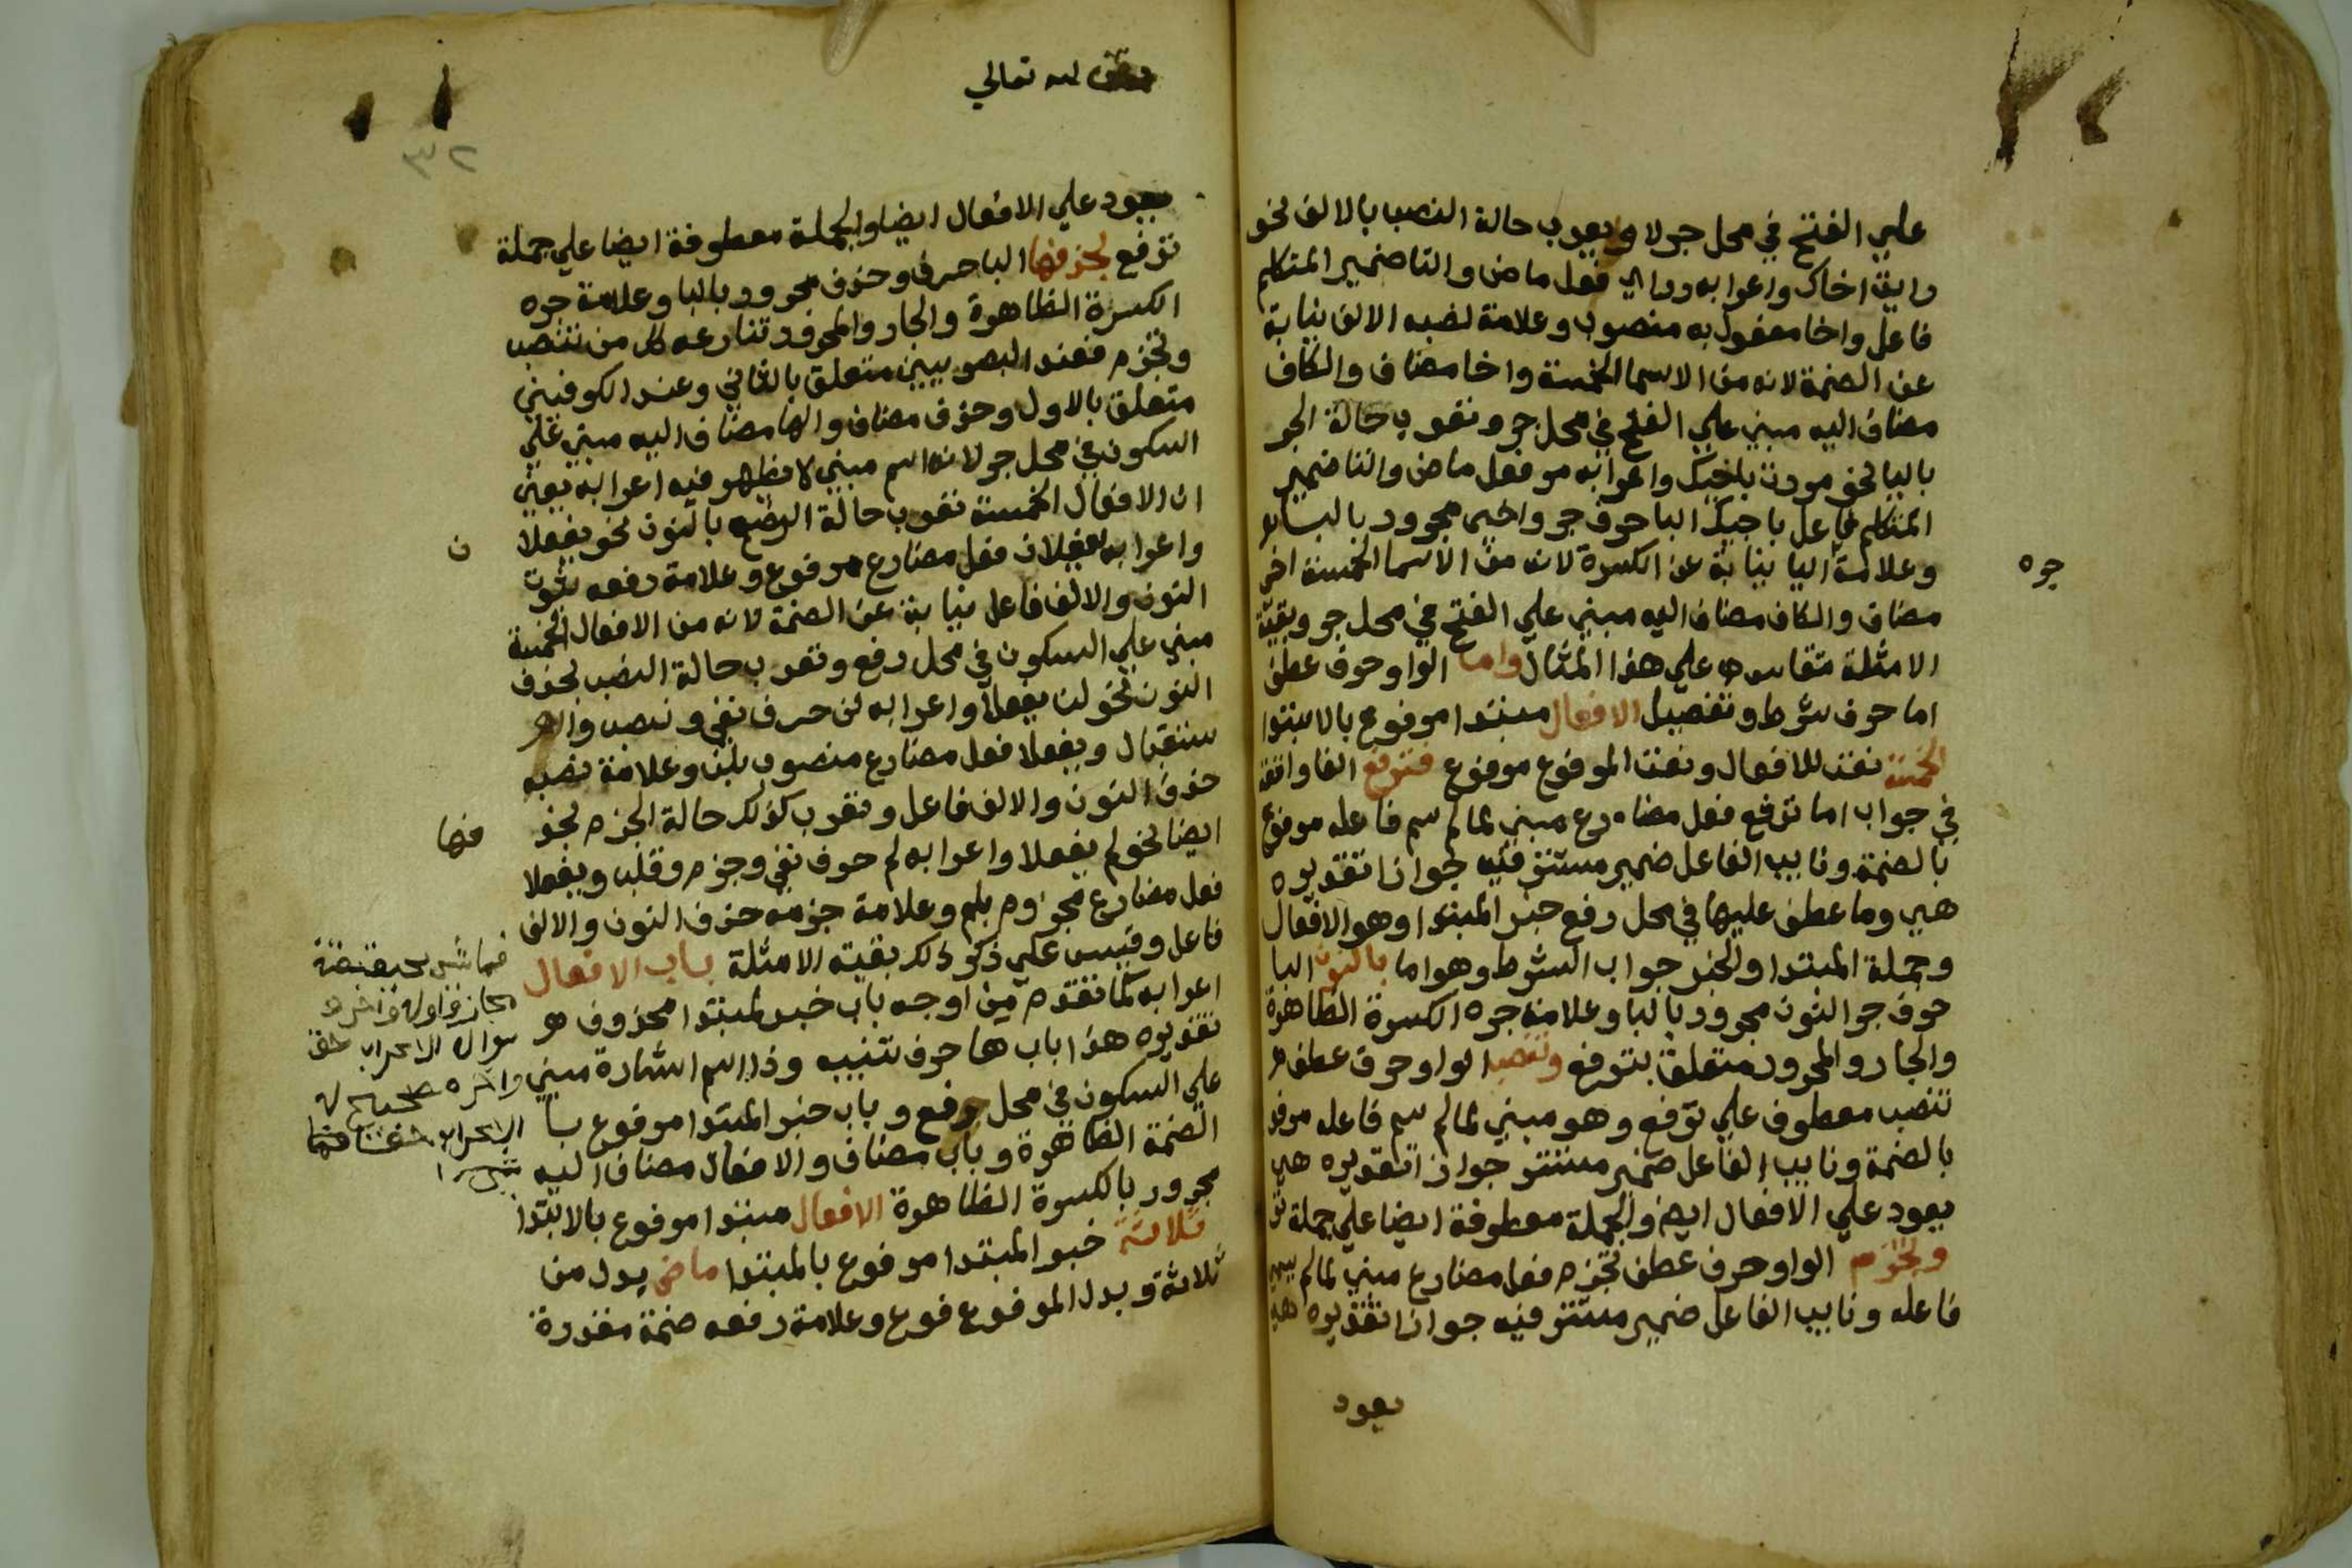 علي الفتح في محل جر لا ويعرب حالة النصب بالالف نحو
رايت اخاك واعرابه راي فعل ماض والتا ضمير المتكلم
فاعل واخا مفعول به منصوب وعلامة نصبه الالف نيابة
عن الضمة لانه من الاسما الخمسة واخا مضاف والكاف
مضاف اليه مبني علي الفتح في محل جر وتعرب حالة الجر
باليا نحو مررت باخيك واعرابه مر فعل ماض والتا ضمير
المتكلم فاعل باخيك البا حرف جر واخي مجرور بالبا
وعلامة اليا نيابة عن الكسرة لانه من الاسما الخمسة اخي
جره
مضاف والكاف مضاف اليه مبني علي الفتح في محل جر وبقية
الامثلة تقاس علي هذا المثال واما الواو حرف عطف
اما حرف شرط وتفصيل الافعال مبتدا مرفوع بالابتدا
الخمسة نعت للافعال ونعت المرفوع مرفوع فترفع الفا واقعة
في جواب اما ترفع فعل مضارع مبني لما لم يسم فاعله مرفوع
بالضمة ونايب الفاعل ضمير مستتر فيه جوازا تقديره
هي وما عطف عليها في محل رفع خبر المبتدا وهو الافعال
وجملة المبتدا والخبر جواب الشرط وهو اما بالنون البا
حرف جر النون مجرور بالبا وعلامة جره الكسرة الظاهرة
والجار والمجرور متعلق بترفع وتنصب الواو حرف عطف
تنصب معطوف علي ترفع وهو مبني لما لم يسم فاعله مرفو
بالضمة ونايب الفاعل ضمير مستتر جوازا تقديره هي
يعود علي الافعال ايضا والجملة معطوفة ايضا علي جملة تر
وتجزم الواو حرف عطف تجزم فعل مضارع مبني لما لم يسم
فاعله ونايب الفاعل ضمير مستتر فيه جوازا تقديره هي
يعود
وقف لله تعالي
٣٢
يعود علي الافعال ايضا والجملة معطوفة ايضا علي جملة
ترفع بحذفها البا حرف وحذف مجرور بالبا وعلامة جره
الكسرة الظاهرة والجار والمجرور تنازعه كل من تنصب
وتجزم فعند البصريين متعلق بالثاني وعند الكوفيين
متعلق بالاول وحذف مضاف والها مضاف اليه مبني علي
السكون في محل جر لانه اسم مبني لا يظهر فيه اعرابه يعني
ان الافعال الخمسة تعرب حالة الرفع بالنون نحو يفعلا
ن
واعرابه يفعلان فعل مضارع مرفوع وعلامة رفعه ثبوت
النون والالف فاعل نيابة عن الضمة لانه من الافعال الخمسة
مبني علي السكون في محل رفع وتعرب حالة النصب بحذف
النون نحو لن يفعلا واعرابه لن حرف نفي ونصب وال
ستقبال ويفعلا فعل مضارع منصوب بلن وعلامة نصبه
حذف النون والالف فاعل وتعرب كذلك حالة الجزم نحو
فها
ايضا نحو لم يفعلا واعرابه لم حرف نفي وجزم وقلب ويفعلا
فعل مضارع مجزوم بلم وعلامة جزمه حذف النون والالف
فاعل وقيس علي ذكر ذلك بقية الامثلة باب الافعال
اعرابه كما تقدم من اوجه باب خبر لمبتدا محذوف هو
تقديره هذا باب ها حرف تنبيه وذا اسم اشارة مبني
علي السكون في محل رفع وباب خبر المبتدا مرفوع با
الضمة الظاهرة وباب مضاف والافعال مضاف اليه
مجرور بالكسرة الظاهرة الافعال مبتدا مرفوع بالابتدا
ثلاثة خبر المبتدا مرفوع بالمبتدا ماض بدل من
ثلاثة وبدل المرفوع فوع وعلامة رفعه ضمة مقدرة